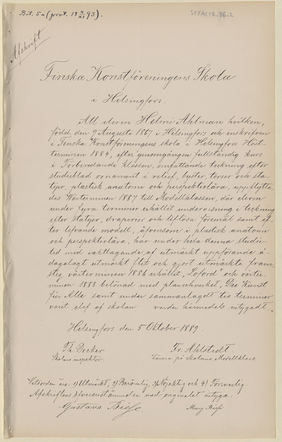 Bil. 5a (prot. 18 2/2 93).
Afskrift
Finska Konstföreningens Skola
i Helsingfors
Att eleven Helmi Ahlman hvilken,
född den 9 Augusti 1867 i Helsingfors och inskrifven
i Finska Konstföreningens skola i Helsingfors Höst-
terminen 1884, efter genomgången fullständig kurs
i Förberedande klassen, omfattande teckning efter
studieblad ornament i relief, byster, torser och sta-
tyer, plastisk anatomi och perspektivlära, uppflytta-
des Hösterminen 1887 till Modellklassen, där eleven
under fyra terminer erhållit undervisning i teckning
efter statyer, draperier och liflösa föremål samt ef-
ter lefvande modell, äfvensom i plastisk anatomi
och perspektivlära, har under hela denna studie-
tid med iakttagande af utmärkt uppförande å-
dagalagt utmärkt flit och gjort utmärkta fram-
steg, vårterminen 1886 erhållit "Loford" och vårter-
minen 1888 belönad med planschverket
samt under sammanlagdt tio terminer
varit elef af skolan varder härmedels intygadt.
Helsingfors den 5 Oktober 1889.
Th. Decker
Fr. Ahlstedt
Skolans inspektor.
Lärare på skolans Modellklass
Vitsorden äro: 1) Utmärkt, 2) Berömlig, 3) Nöjaktig och 4) Försvarlig
Afskriftens öfverensstämmelse med originalet intyga: